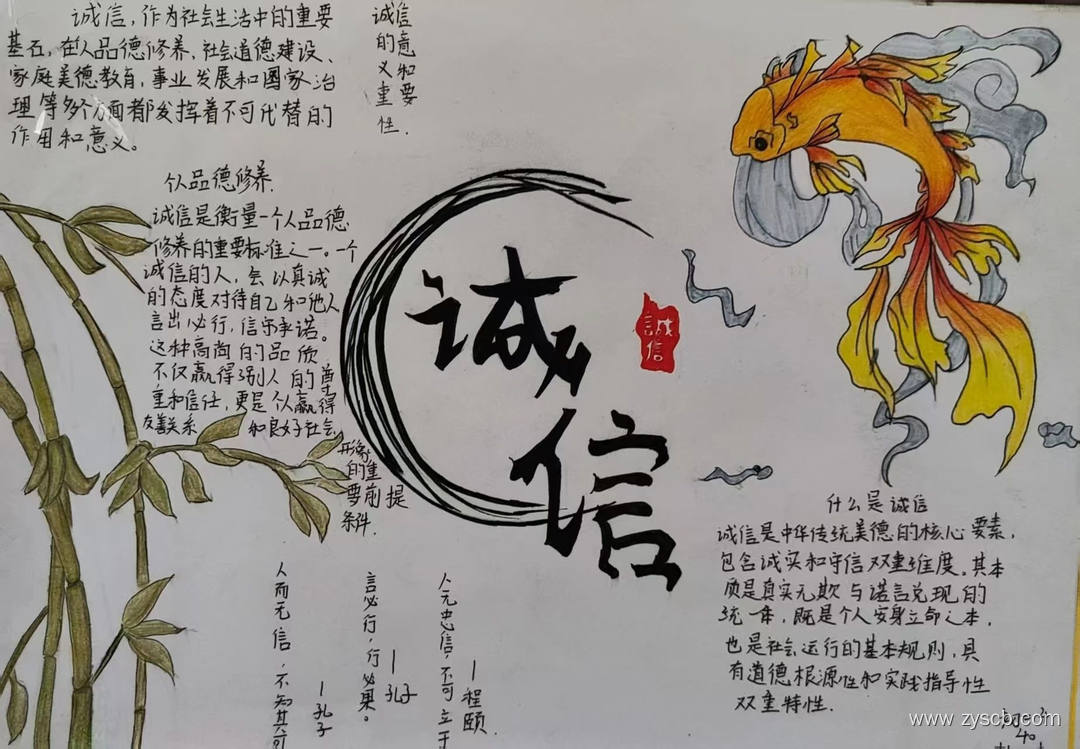 诚信，作为社会生活中的重要
基石，在人品德修养、社会道德建设、
家庭美德教育，事业发展和国家治
理等多个方面都发挥着不可代替的
作用和意义。
诚信
的意
义和
重要
性．
个人品德修养．
诚信是衡量一个人品德
修养的重要标准之一。一个
诚信的人，会以真诚
的态度对待自己和他人
言出必行，信守承诺。
这种高尚的品质
不仅赢得别人的尊
重和信任，更是个人赢得
友善关系 和良好社会
形象
的重
要前提
条件．
诚信
誠信
什么是诚信
诚信是中华传统美德的核心要素，
包含诚实和守信双重维度。其本
质是真实无欺与诺言兑现的
统一体，既是个人安身立命之本，
也是社会运行的基本规则，具
有道德根源性和实践指导性
双重特性．
人而无信，不知其可
—孔子
言必行，行必果。
—孔子
人无忠信，不可立于
—程颐
www.zyscb.com